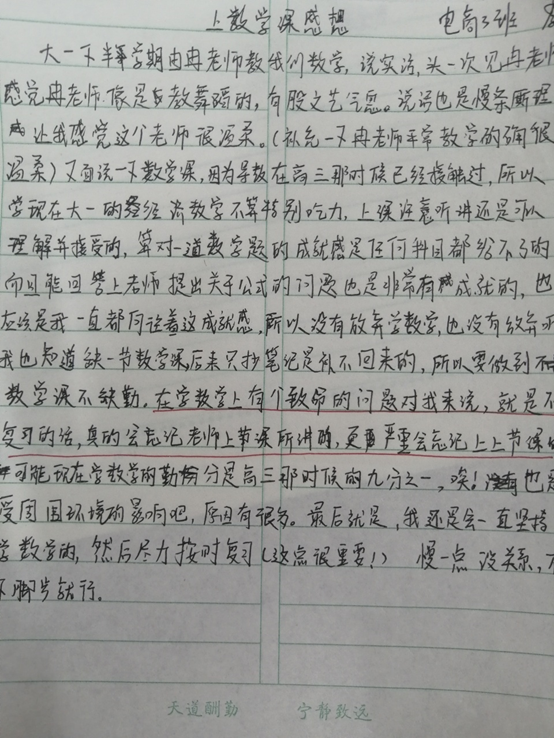 上数学课感想 电商3班
大一下半学期由冉老师教我们数学,说实话,头一次见冉老师
感觉冉老师像是教舞蹈的,有股文艺气息。说话也是慢条斯理
让我感觉这个老师很温柔。(补充一下冉老师平常教学的确很
温柔)又面谈一下数学课,因为导数在高三那时候已经接触过,所以
学现在大一的经济数学不算特别吃力,上课注意听讲还是可以
理解并接受的,算对一道数学题的成就感是任何科目都给不了的
而且能回答上老师提出关于公式的问题也是非常有成就的,也
应该是我一直都向往着这成就感,所以没有放弃学数学,也没有放弃
我也知道缺一节数学课后来只抄笔记是补不回来的,所以要做到不
数学课不缺勤。在学数学上有个致命的问题对我来说,就是不
复习的话,真的会忘记老师上节课所讲的,更严重会忘记上上节课
可能现在学数学的勤奋分是高三那时候的九分之一,唉!也是
受周围环境的影响吧,原因有很多。最后就是,我还是会一直坚持
学数学的,然后尽力按时复习(这点很重要!) 慢一点没关系,不
下脚步就行。
天道酬勤 宁静致远